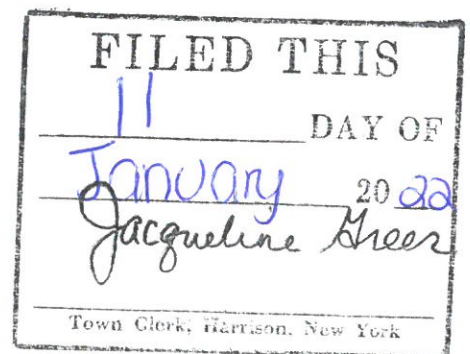 FILED THIS
11
DAY OF
January 2022
Jacqueline Greer
Town Clerk, Harrison, New York